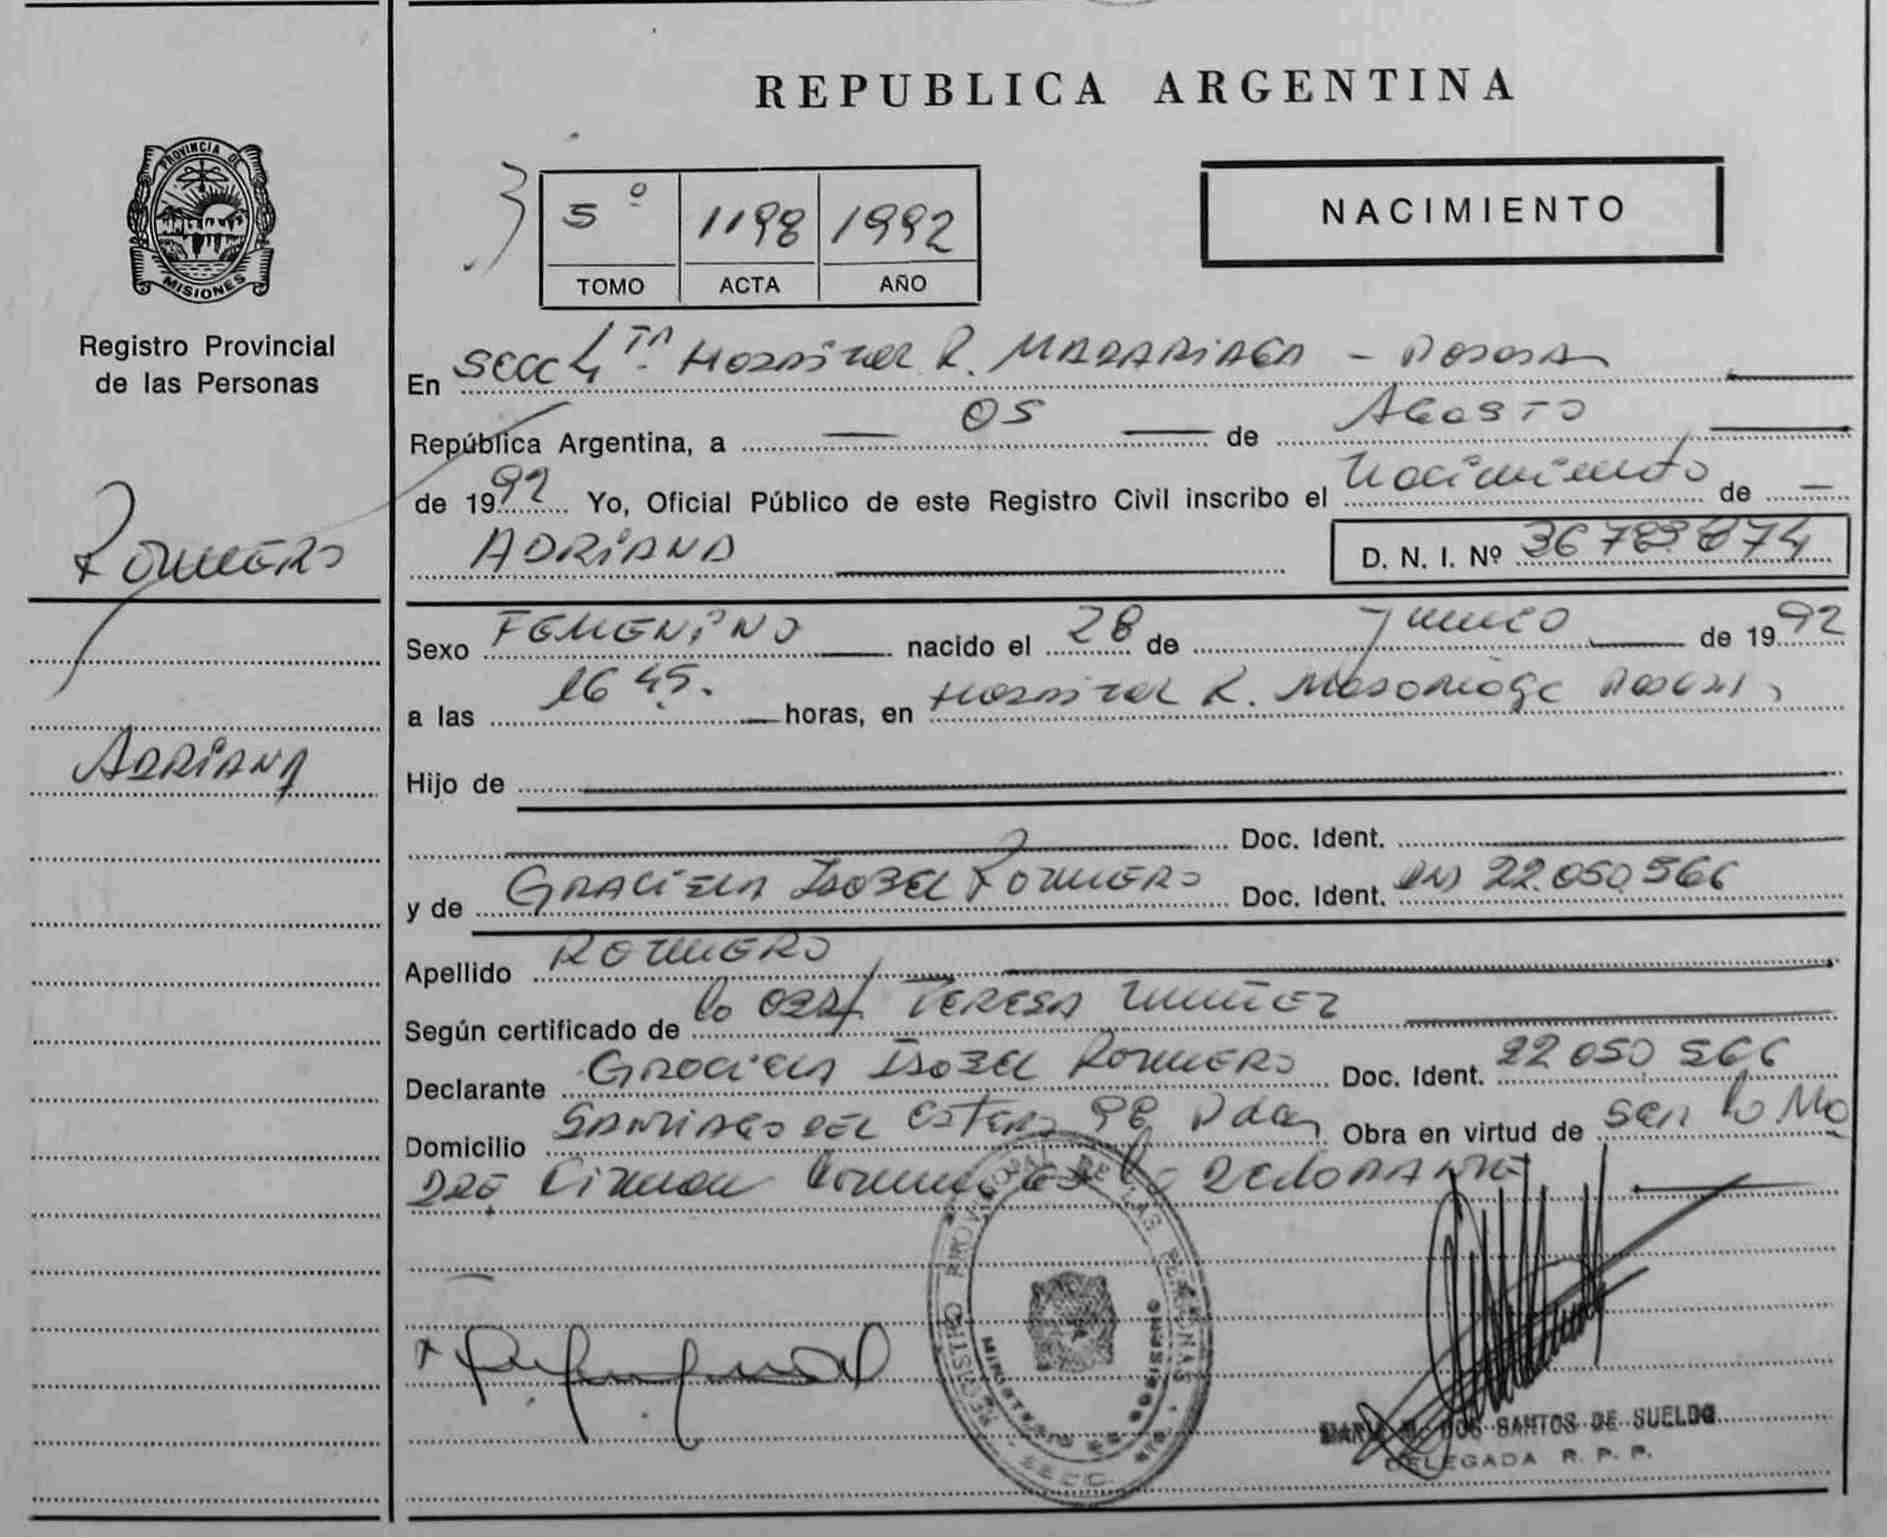 REPUBLICA ARGENTINA
PROVINCIA DE
MISIONES
Registro Provincial
de las Personas
5º 1198 1992
TOMO ACTA AÑO
NACIMIENTO
En SECC 4TA Hospital R. MADARIAGA - Posadas
República Argentina, a 05 de Agosto
de 1992 Yo, Oficial Público de este Registro Civil inscribo el Nacimiento de
ADRIANA D. N. I. Nº 36783874
ROMERO
Sexo FEMENINO nacido el 28 de Junio de 1992
a las 16 45. horas, en Hospital R. Madariaga Posadas
ADRIANA
Hijo de
Doc. Ident.
y de GRACIELA Isabel Romero Doc. Ident. DNI 22.050.566
Apellido ROMERO
Según certificado de la Obst TERESA
Declarante Graciela Isabel Romero Doc. Ident. 22 050 566
Domicilio SANTIAGO DEL Estero 98 Pdas Obra en virtud de Ser la Ma
Dre Firman la DECLARANTE
REGISTRO PROVINCIAL DE LAS PERSONAS
MINISTERIO
MISIONES
SECC
DOS SANTOS DE SUELDO
DELEGADA R. P. P.